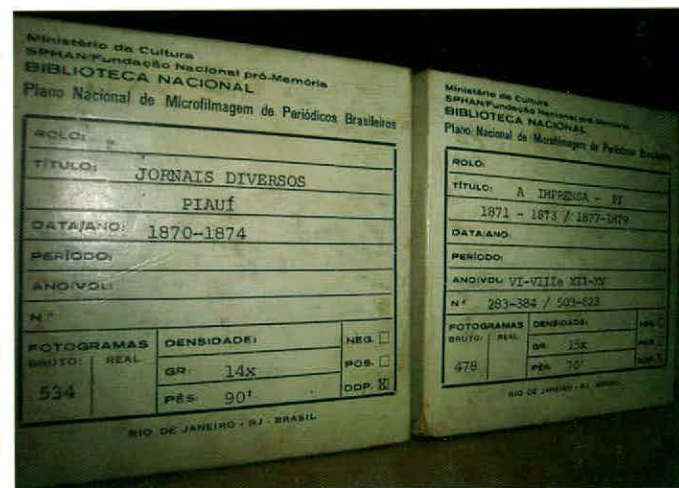 Ministério da Cultura
SPHAN/Fundação Nacional pró-Memória
BIBLIOTECA NACIONAL
Plano Nacional de Microfilmagem de Periódicos Brasileiros
ROLO:
TÍTULO: JORNAIS DIVERSOS
PIAUÍ
DATA/ANO: 1870-1874
PERÍODO:
ANO/VOL:
N.º
FOTOGRAMAS DENSIDADE: NEG.
BRUTO: REAL GR: 14x POS.
534 PÉS: 90' DDP. X
RIO DE JANEIRO - RJ - BRASIL
Ministério da Cultura
SPHAN/Fundação Nacional pró-Memória
BIBLIOTECA NACIONAL
Plano Nacional de Microfilmagem de Periódicos Brasileiros
ROLO:
TÍTULO: A IMPRENSA - PI
1871 - 1873 / 1877-1879
DATA/ANO:
PERÍODO:
ANO/VOL: VI-VIIIe XII-XV
N.º 283-384 / 503-623
FOTOGRAMAS DENSIDADE: NEG.
BRUTO: REAL GR: 15x
478 PÉS: 70'
RIO DE JANEIRO - RJ - BRASIL